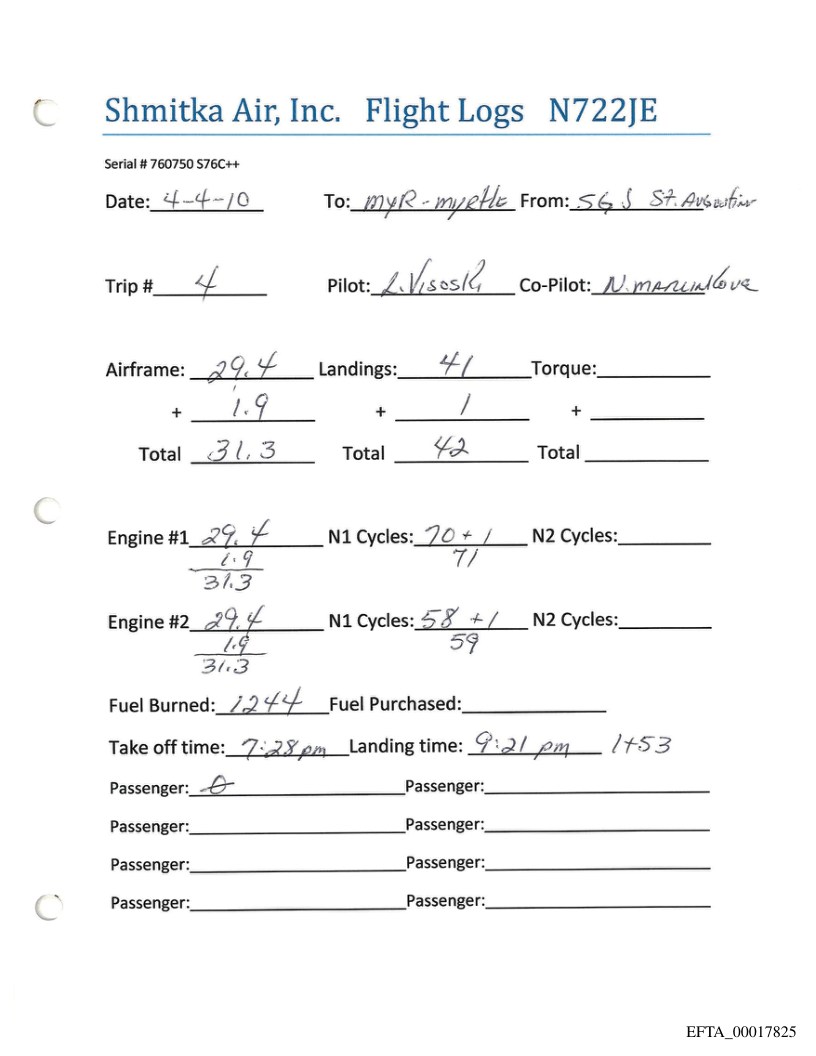 Shmitka Air, Inc. Flight Logs N722JE
Serial # 760750 S76C++
Date: 4-4-10 To: MYR - MYRtle From: SGJ St. Augustine
Trip # 4 Pilot: L. Visoski Co-Pilot: N. MARCINKOVA
Airframe: 29.4 Landings: 41 Torque:
+ 1.9 + 1 +
Total 31.3 Total 42 Total
Engine #1 29.4 N1 Cycles: 70 + 1 N2 Cycles:
1.9 71
31.3
Engine #2 29.4 N1 Cycles: 58 +1 N2 Cycles:
1.9 59
31.3
Fuel Burned: 1244 Fuel Purchased:
Take off time: 7:28 pm Landing time: 9:21 pm 1+53
Passenger: 0 Passenger:
Passenger: Passenger:
Passenger: Passenger:
Passenger: Passenger:
EFTA_00017825